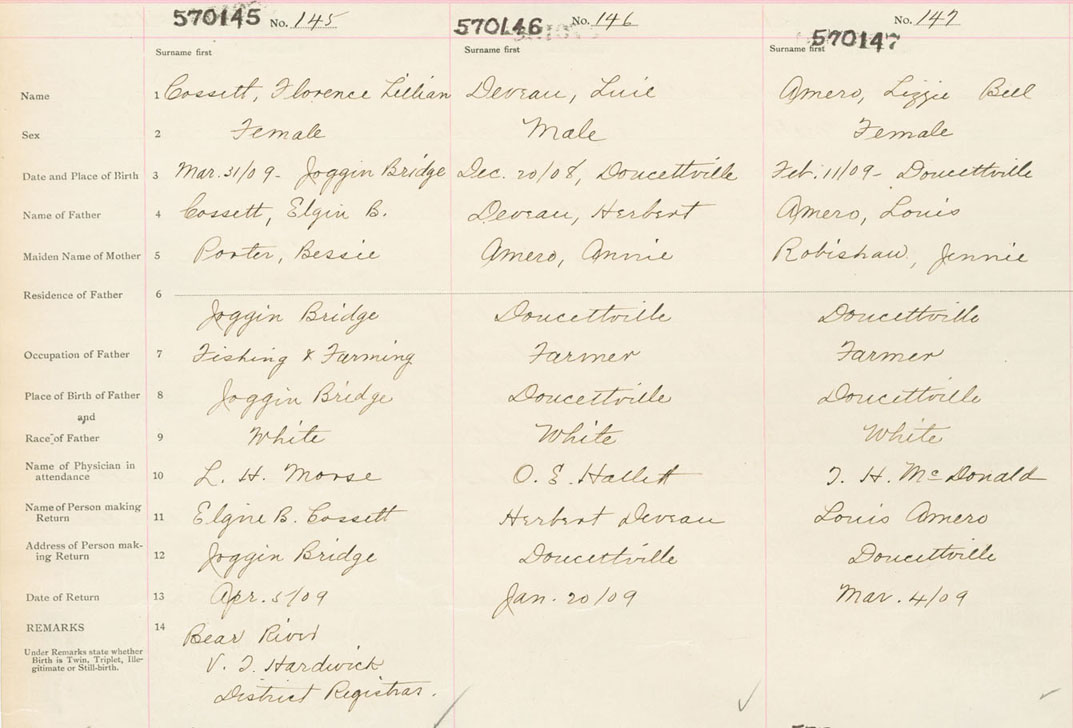 570145 No. 145 570146 No. 146 No. 147 570147
Surname first Surname first Surname first
Name 1 Cossett, Florence Lillian Deveau, Luie Amero, Lizzie Bell
Sex 2 Female Male Female
Date and Place of Birth 3 Mar. 31/09 - Joggin Bridge Dec. 20/08, Doucettville Feb. 11/09 - Doucettville
Name of Father 4 Cossett, Elgin B. Deveau, Herbert Amero, Louis
Maiden Name of Mother 5 Porter, Bessie Amero, Annie Robishaw, Jennie
Residence of Father 6
Joggin Bridge Doucettville Doucettville
Occupation of Father 7 Fishing & Farming Farmer Farmer
Place of Birth of Father 8 Joggin Bridge Doucettville Doucettville
and
Race of Father 9 White White White
Name of Physician in attendance 10 L. H. Morse O. E. Hallett J. H. McDonald
Name of Person making Return 11 Elgine B. Cossett Herbert Deveau Louis Amero
Address of Person mak-ing Return 12 Joggin Bridge Doucettville Doucettville
Date of Return 13 Apr. 5/09 Jan. 20/09 Mar. 4/09
REMARKS 14 Bear River
Under Remarks state whether
Birth is Twin, Triplet, Ille-
gitimate or Still-birth.
V. J. Hardwick
District Registrar.